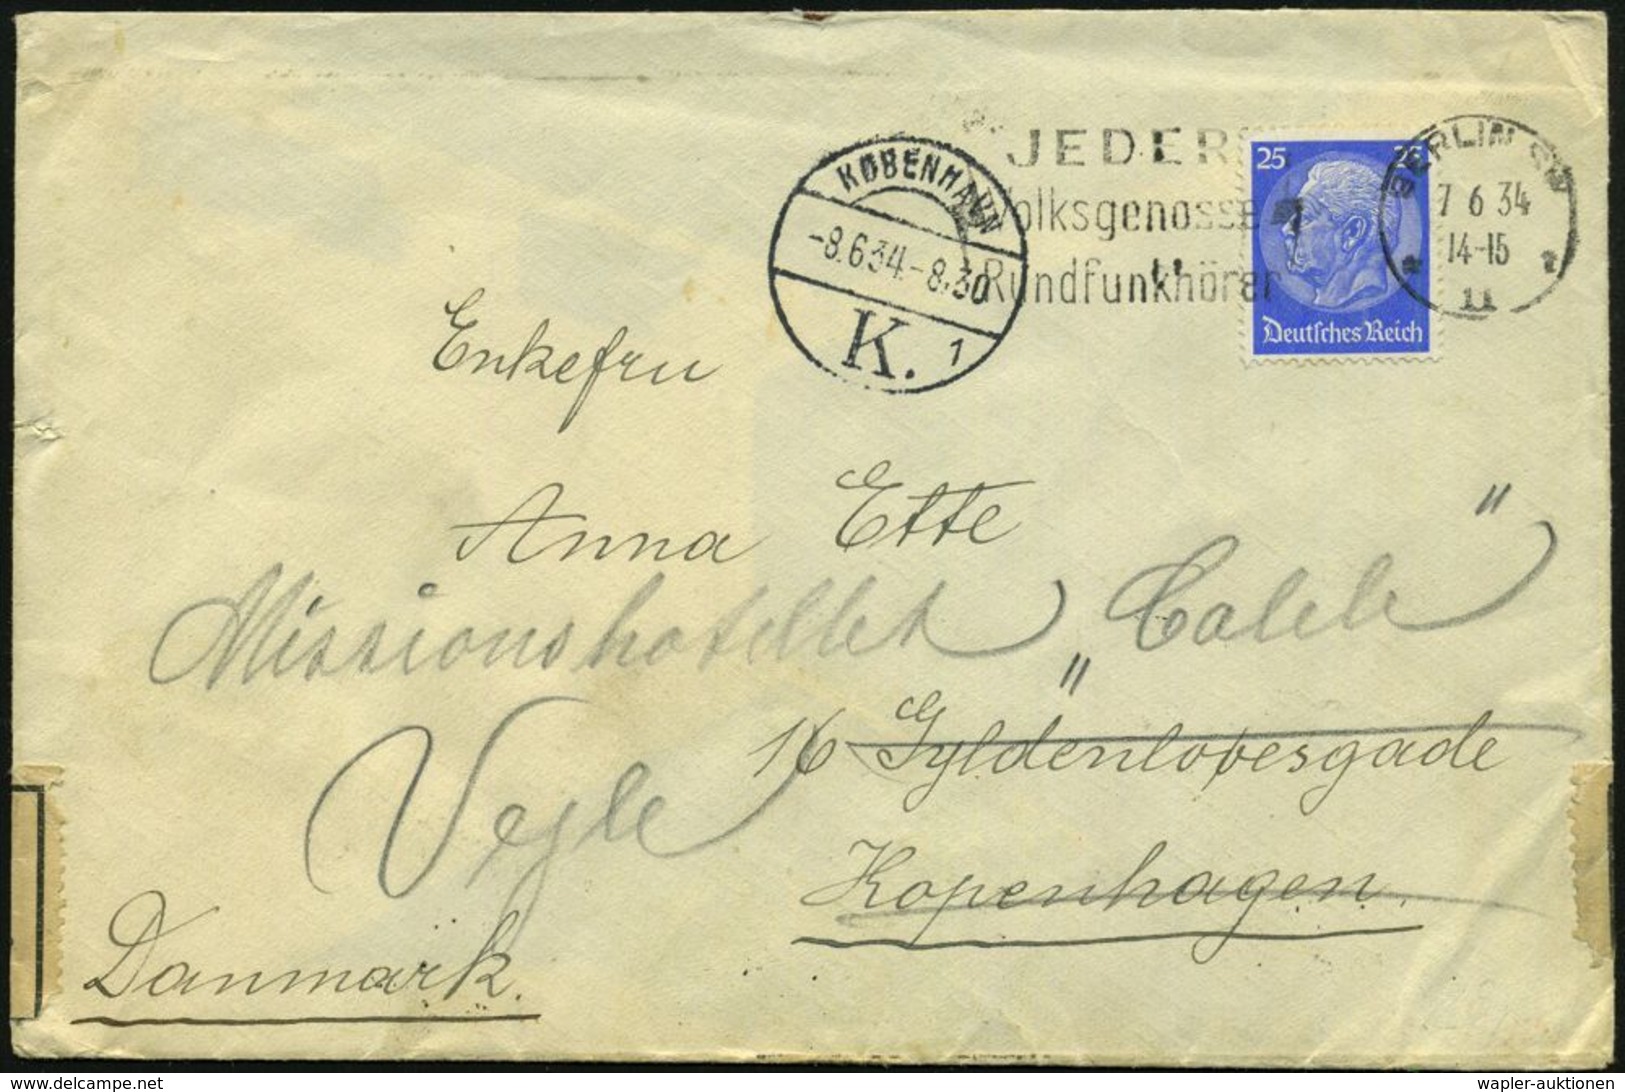 JEDER
Volksgenosse
Rundfunkhörer
25 25
Deutsches Reich
BERLIN SW
7 6 34
14-15
11
KØBENHAVN
-8.6.34.-8.30
K. 1
Enkefru
Anna Ette
Missionshotellet "Caleb"
16 Gyldenlovesgade
Vejle
Kopenhagen.
Danmark.
wapler-auktionen